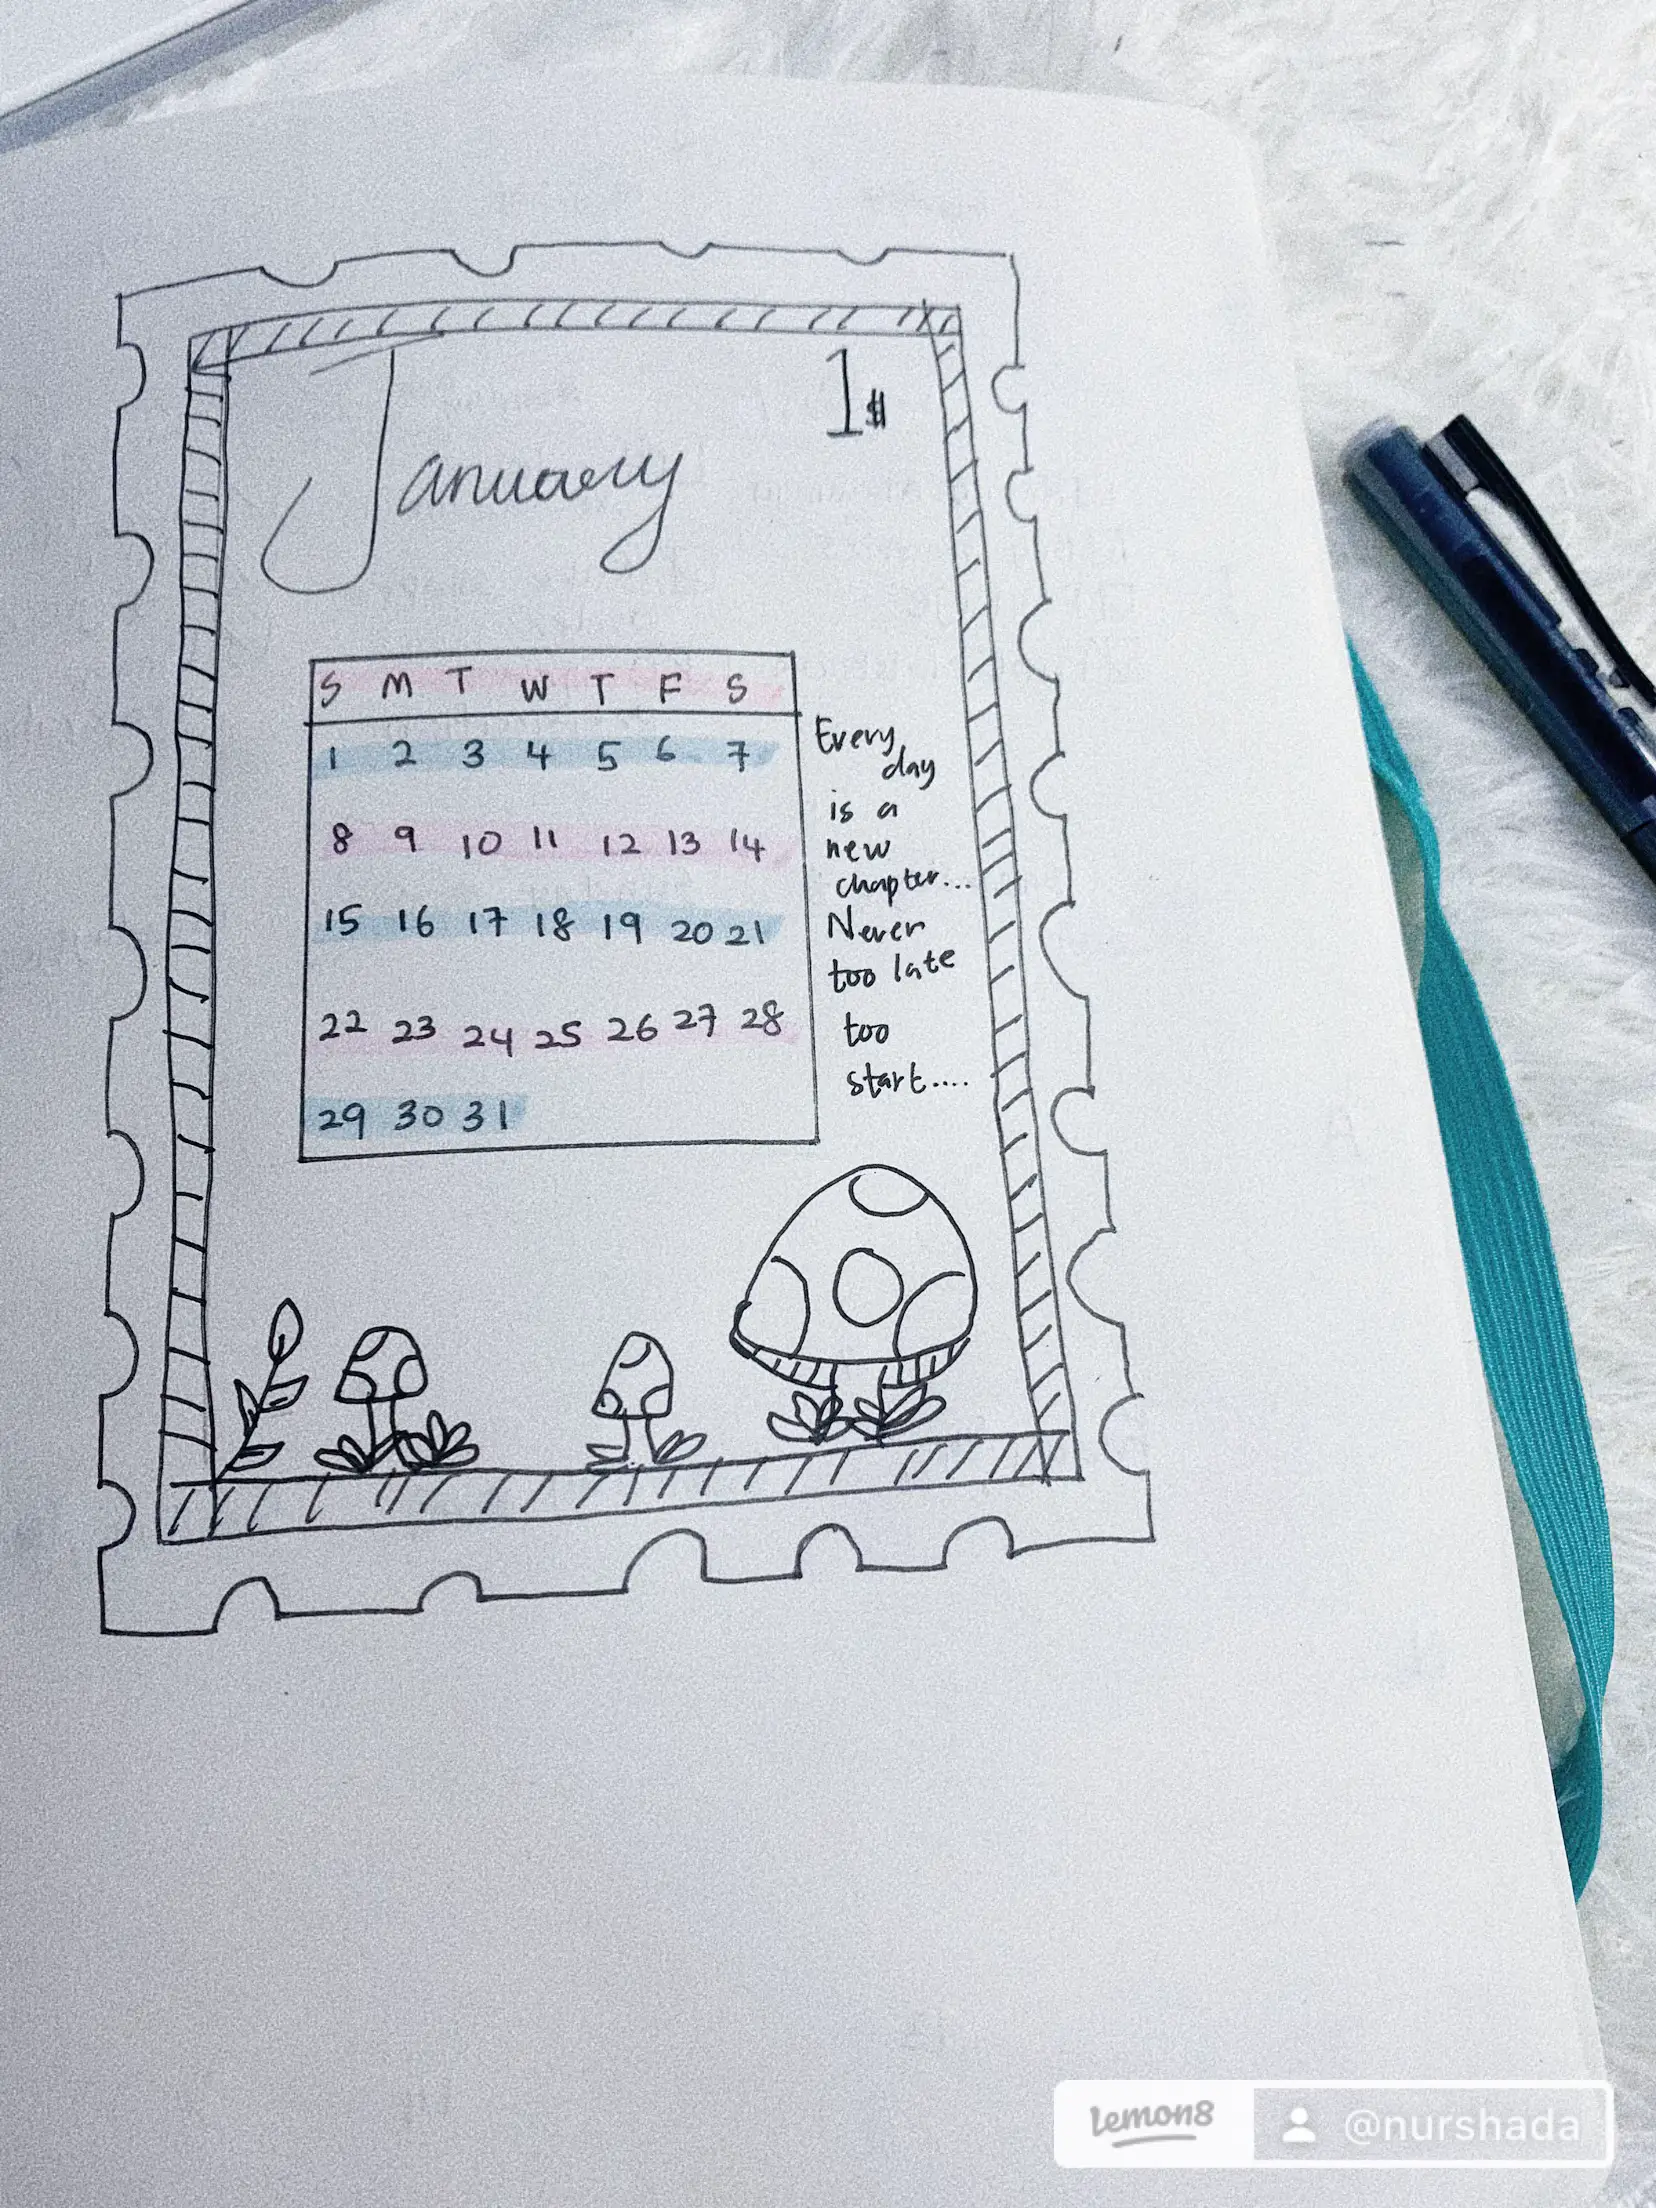 January
1
S M T W T F S
1 2 3 4 5 6 7
8 9 10 11 12 13 14
15 16 17 18 19 20 21
22 23 24 25 26 27 28
29 30 31
Every
day
is a
new
chapter...
Never
too late
too
start....
lemon8 @nurshada